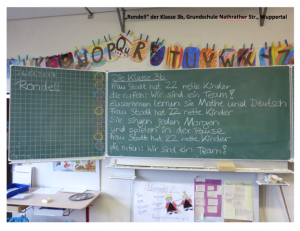 „Rondell“ der Klasse 3b, Grundschule Nathrather Str., Wuppertal
Rondell
Die Klasse 3b
Frau Stadt hat 22 nette Kinder,
die rufen: Wir sind ein Team!
Zusammen lernen sie Mathe und Deutsch
Frau Stadt hat 22 nette Kinder
Sie singen jeden Morgen
und spielen in der Pause
Frau Stadt hat 22 nette Kinder
die rufen: Wir sind ein Team!